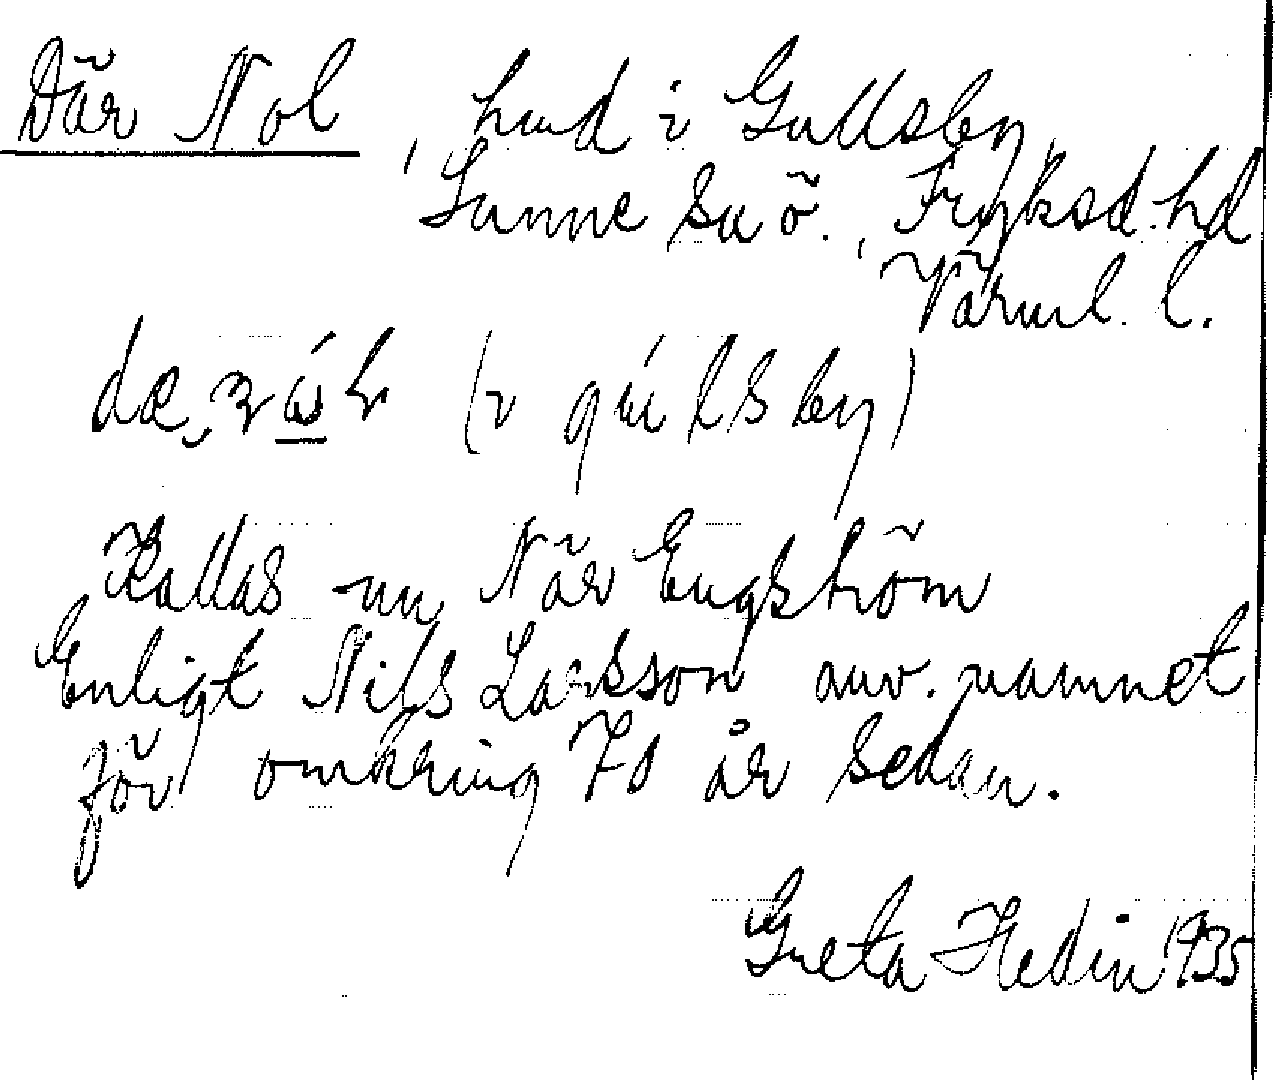 Där Nol, hmd i Gullsby,
Sunne sn ö., Fryksd. hd
Värml. l.
(i gúlsby)
Kallas nu När Engström
Enligt Nils Larsson anv. namnet
för omkring 70 år sedan.
Greta Hedin 1935